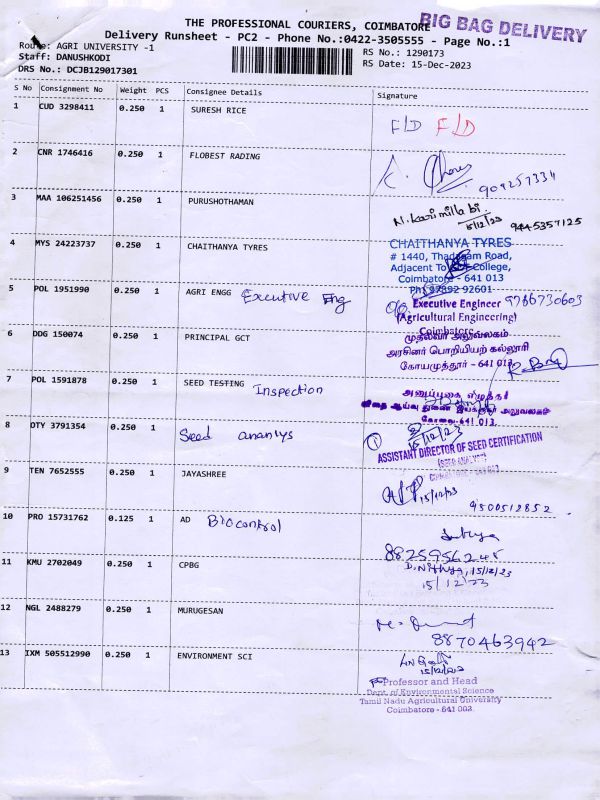 THE PROFESSIONAL COURIERS, COIMBATORE
BIG BAG DELIVERY
Delivery Runsheet - PC2 - Phone No.:0422-3505555 - Page No.:1
Route: AGRI UNIVERSITY -1
RS No.: 1290173
Staff: DANUSHKODI
RS Date: 15-Dec-2023
DRS No.: DCJB129017301
S No Consignment No Weight PCS Consignee Details Signature
1 CUD 3298411 0.250 1 SURESH RICE F/D F/D
2 CNR 1746416 0.250 1 FLOBEST RADING
3 MAA 106251456 0.250 1 PURUSHOTHAMAN
15/12/23 9445357125
4 MYS 24223737 0.250 1 CHAITHANYA TYRES
CHAITHANYA TYRES
# 1440, Thadagam Road,
Adjacent To College,
Coimbatore - 641 013
Ph: 97892 92601
5 POL 1951990 0.250 1 AGRI ENGG Executive Eng
Executive Engineer 9786730603
(Agricultural Engineering)
Coimbatore
6 DDG 150074 0.250 1 PRINCIPAL GCT
முதல்வர் அலுவலகம்
அரசினர் பொறியியற் கல்லூரி
கோயமுத்தூர் - 641 013
7 POL 1591878 0.250 1 SEED TESTING Inspection
அலுவலகம்
கோவை-641 013.
8 OTY 3791354 0.250 1 Seed ananlys
15/12/23
ASSISTANT DIRECTOR OF SEED CERTIFICATION
9 TEN 7652555 0.250 1 JAYASHREE
15/12/23
9500512852
10 PRO 15731762 0.125 1 AD Biocontrol
8825956245
11 KMU 2702049 0.250 1 CPBG
D. Nithya, 15/12/23
15/12/23
12 NGL 2488279 0.250 1 MURUGESAN
8870463942
13 IXM 505512990 0.250 1 ENVIRONMENT SCI
15/12/23
Professor and Head
Dept. of Environmental Science
Tamil Nadu Agricultural University
Coimbatore - 641 003.